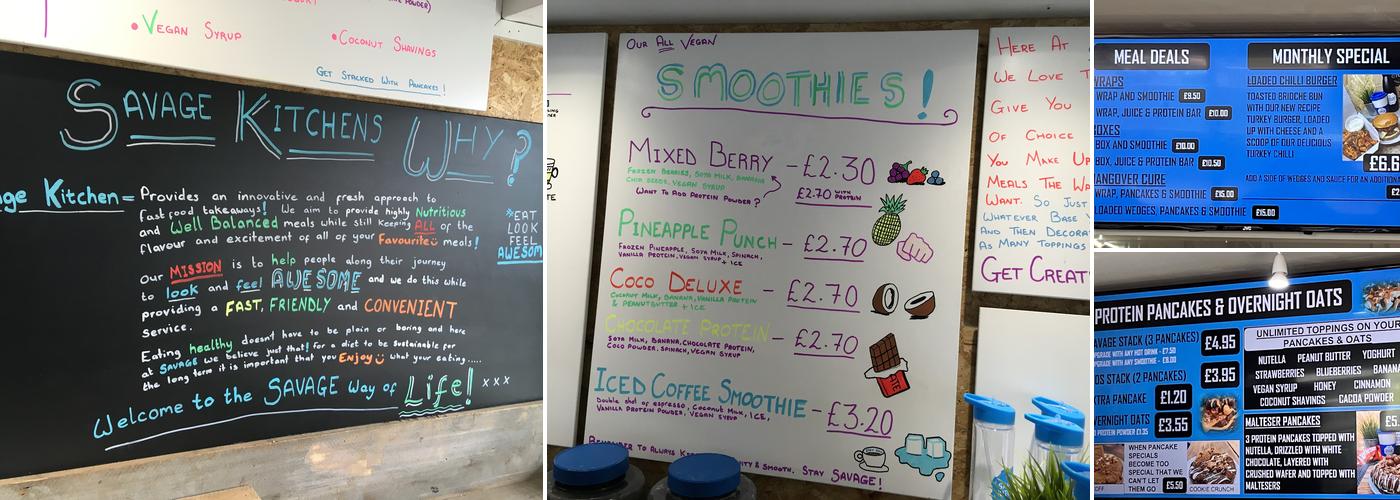 POWDER)
•VEGAN SYRUP
•COCONUT SHAVINGS
GET STACKED WITH PANCAKES!
SAVAGE KITCHENS WHY?
Kitchen = Provides an innovative and fresh approach to
fast food takeaways! We aim to provide highly Nutritious
and Well Balanced meals while still keeping ALL of the
flavour and excitement of all of your Favourite meals!
Our MISSION is to help people along their journey
to look and feel AWESOME and we do this while
providing a FAST, FRIENDLY and CONVENIENT
service.
Eating healthy doesnt have to be plain or boring and here
at SAVAGE we believe just that! for a diet to be sustainable for
the long term it is important that you Enjoy what your eating.....
Welcome to the SAVAGE way of Life! xxx
*EAT
LOOK
FEEL
AWESOM
OUR ALL VEGAN
SMOOTHIES!
MIXED BERRY - £2.30
FROZEN BERRIES, SOYA MILK, BANANA
CHIA SEEDS, VEGAN SYRUP
(WANT TO ADD PROTEIN POWDER?
£2.70 WITH PROTEIN
PINEAPPLE PUNCH - £2.70
FROZEN PINEAPPLE, SOYA MILK, SPINACH,
VANILLA PROTEIN, VEGAN SYRUP + ICE
COCO DELUXE - £2.70
COCONUT MILK, BANANA, VANILLA PROTEIN
& PEANUTBUTTER + ICE
CHOCOLATE PROTEIN - £2.70
SOYA MILK, BANANA, CHOCOLATE PROTEIN,
COCO POWDER, SPINACH, VEGAN SYRUP
ICED COFFEE SMOOTHIE - £3.20
Double shot of espresso, Coconut MILK, ICE,
VANILLA PROTEIN POWDER, VEGAN SYRUP
REMEMBER TO ALWAYS & SMOOTH. STAY SAVAGE!
HERE AT
WE LOVE
GIVE YOU
OF CHOICE
YOU MAKE UP
MEALS THE WA
WANT. SO JUST
WHATEVER BASE
AND THEN DECORAT
AS MANY TOPPINGS
GET CREAT
MEAL DEALS
WRAPS
WRAP AND SMOOTHIE £9.50
WRAP, JUICE & PROTEIN BAR £10.00
OXES
BOX AND SMOOTHIE £10.00
BOX, JUICE & PROTEIN BAR £10.50
HANGOVER CURE
WRAP, PANCAKES & SMOOTHIE £15.00
LOADED WEDGES, PANCAKES & SMOOTHIE £15.00
MONTHLY SPECIAL
LOADED CHILLI BURGER
TOASTED BRIOCHE BUN
WITH OUR NEW RECIPE
TURKEY BURGER, LOADED
UP WITH CHEESE AND A
SCOOP OF OUR DELICIOUS
TURKEY CHILLI
£6.6
ADD A SIDE OF WEDGES AND SAUCE FOR AN ADDITIONA
£2
JVC
PROTEIN PANCAKES & OVERNIGHT OATS
AVAGE STACK (3 PANCAKES) £4.95
PGRADE WITH ANY HOT DRINK - £7.50
PGRADE WITH ANY SMOOTHIE - £8.00
OS STACK (2 PANCAKES) £3.95
XTRA PANCAKE £1.20
VERNIGHT OATS £3.55
PROTEIN POWDER £1.35
WHEN PANCAKE
SPECIALS
BECOME TOO
SPECIAL THAT WE
CAN'T LET
THEM GO £5.50
COOKIE CRUNCH
UNLIMITED TOPPINGS ON YOUR
PANCAKES & OATS
NUTELLA PEANUT BUTTER YOGHURT
STRAWBERRIES BLUEBERRIES BANANA
VEGAN SYRUP HONEY CINNAMON
COCONUT SHAVINGS CACOA POWDER
MALTESER PANCAKES £5.
3 PROTEIN PANCAKES TOPPED WITH
NUTELLA, DRIZZLED WITH WHITE
CHOCOLATE, LAYERED WITH
CRUSHED WAFER AND TOPPED WITH
MALTESERS